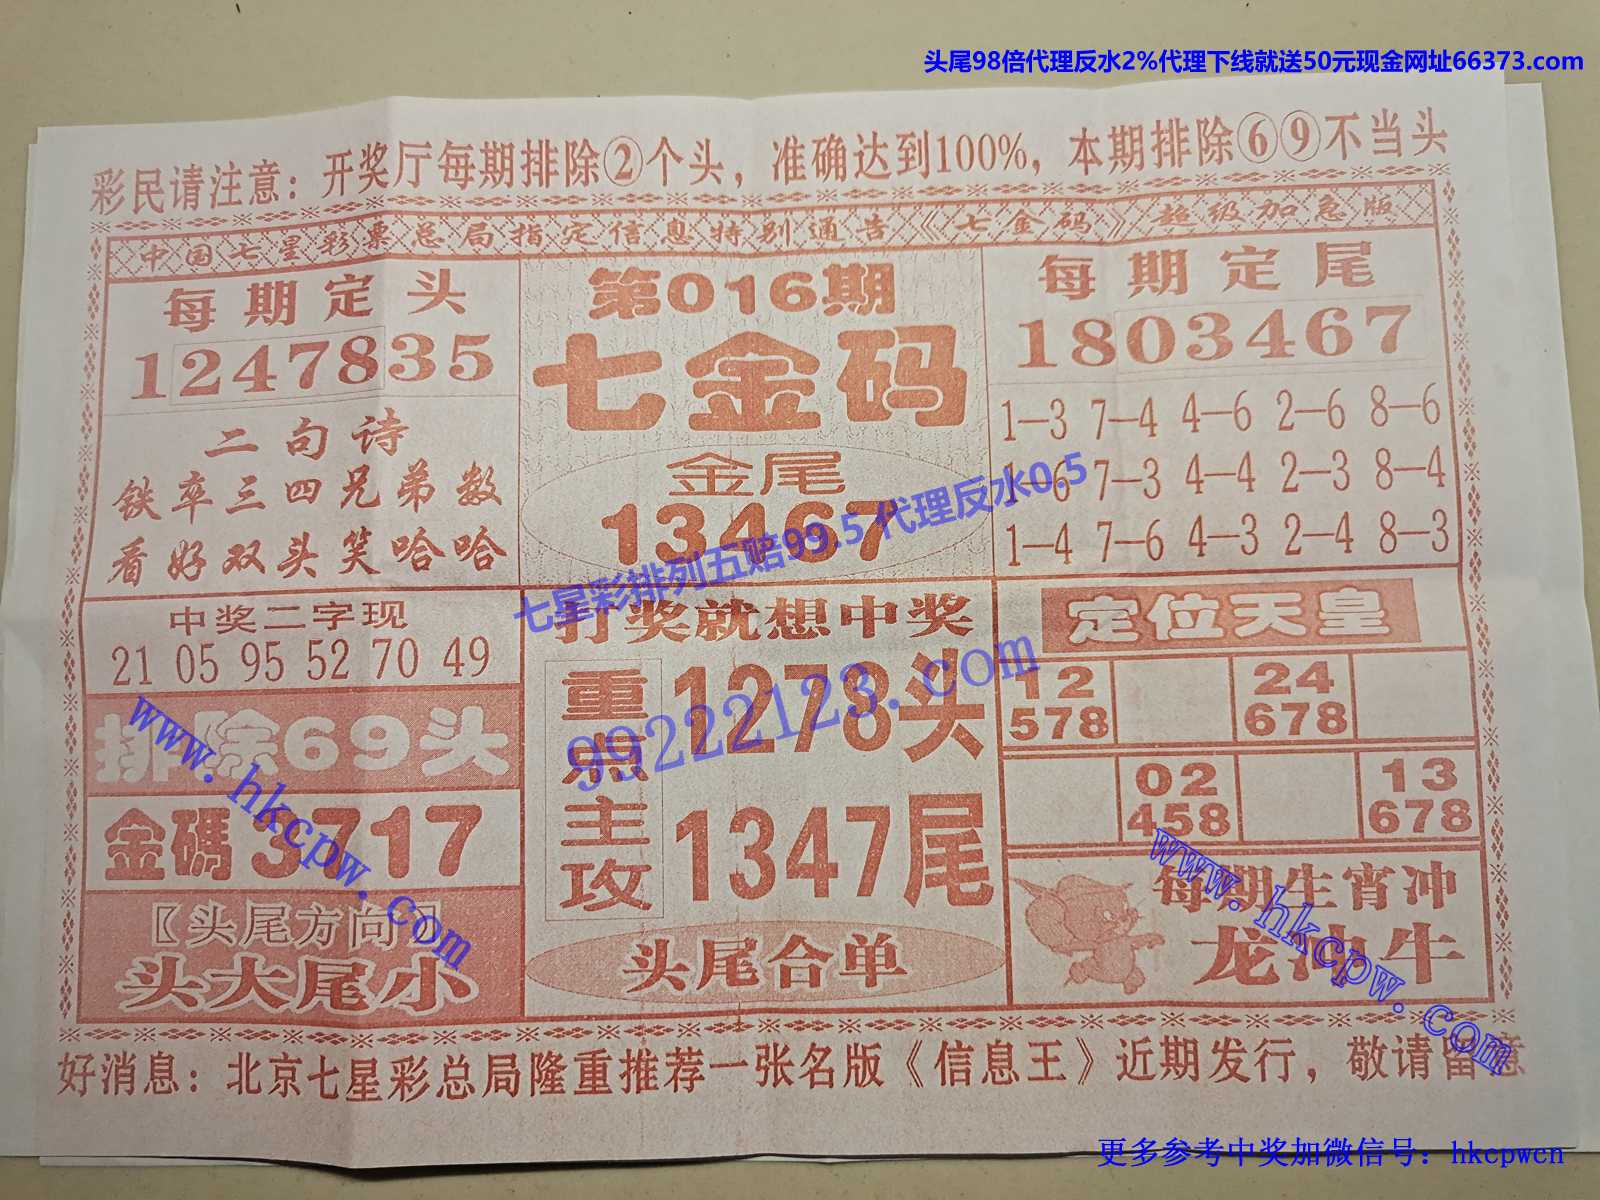 头尾98倍代理反水2%代理下线就送50元现金网址66373.com
彩民请注意：开奖厅每期排除②个头，准确达到100%，本期排除⑥⑨不当头
中国七星彩票总局指定信息特别通告《七金码》超级加急版
每期定头
1247835
二句诗
铁卒三四兄弟数
看好双头笑哈哈
第016期
七金码
金尾
13467
每期定尾
1803467
1—3 7—4 4—6 2—6 8—6
1—6 7—3 4—4 2—3 8—4
1—4 7—6 4—3 2—4 8—3
七星彩排列五赔99.5 代理反水0.5
99222123.com
中奖二字现
21 05 95 52 70 49
排除69头
金碼3717
〖头尾方向〗
头大尾小
www.hkcpw.com
打奖就想中奖
重点主攻
1278头
1347尾
头尾合单
定位天皇
12 24
578 678
02 13
458 678
每期生肖冲
龙冲牛
www.hkcpw.com
好消息：北京七星彩总局隆重推荐一张名版《信息王》近期发行，敬请留意
更多参考中奖加微信号：hkcpwcn